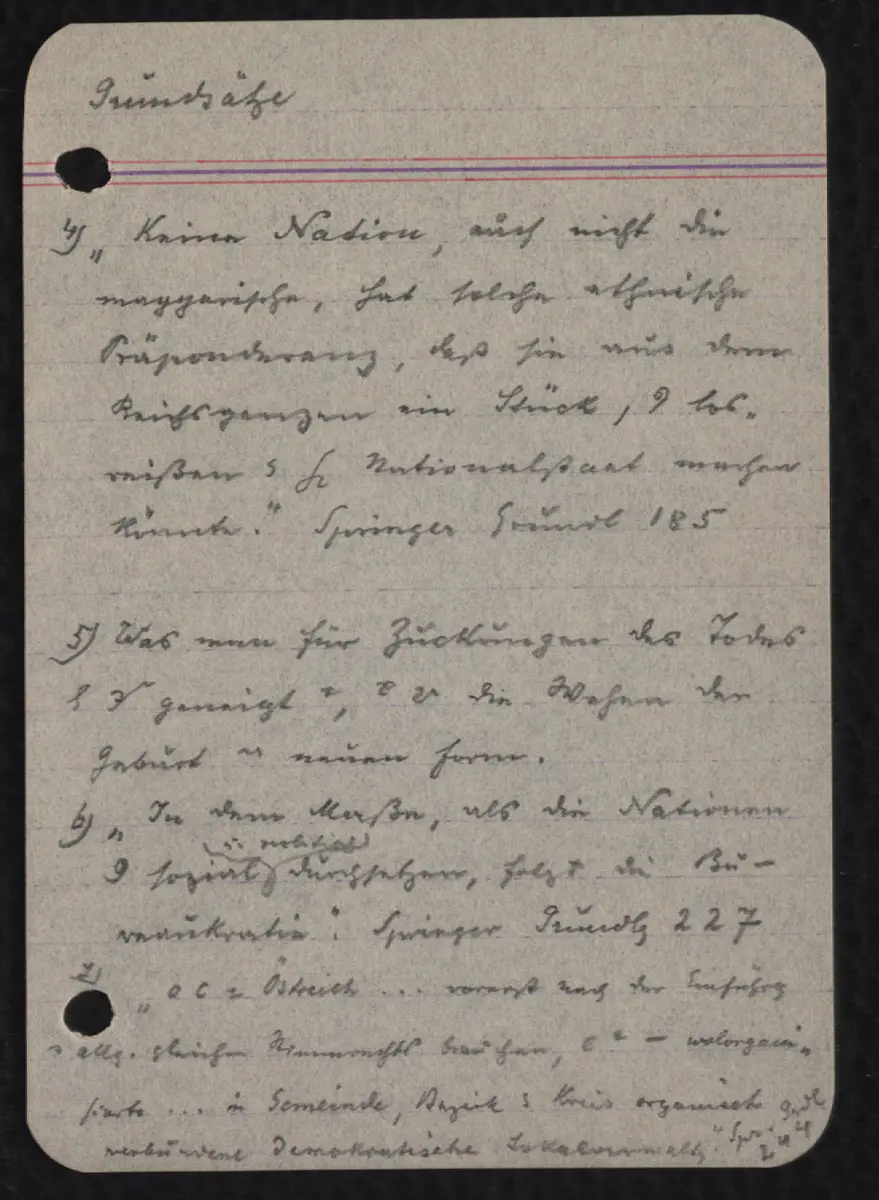 Grundsätze
4) „Keine Nation, auch nicht die
magyarische, hat solche ethnische
Präponderanz, daß sie aus dem
Reichsganzen ein Stück, los-
reißen Nationalstaat machen
könnte." Springer Grundl 185
5) Was man für Zuckungen des Todes
geneigt, die Wehen der
Geburt neuen Form.
6) „In dem Maße, als die Nationen
sozial durchsetzen, folgt die Bu-
reaukratie". Springer Grundlg 227
7) „ Östreich ... vorerst nach der Einführg
allg. gleichen Stimmrechts brauchen, – wolorgani-
sierte ... in Gemeinde, Bezirk Kreis organisch
verbundene demokratische Lokalverwaltg" Spri
244